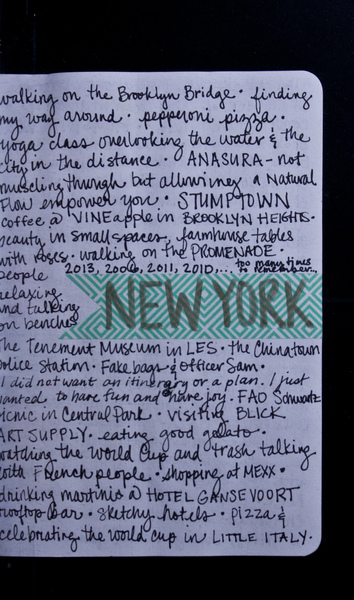 walking on the Brooklyn Bridge · finding
my way around · pepperoni pizza ·
yoga class overlooking the water & the
city in the distance · ANASURA - not
muscling through but allowing a Natural
Flow empower you · STUMPTOWN
coffee @ VINEapple in BROOKLYN HEIGHTS ·
beauty in small spaces, farmhouse tables
with roses · walking on the PROMENADE ·
people 2013, 2006, 2011, 2010,... too many times to remember...
relaxing
and talking
on benches
NEW YORK
The Tenement Museum in LES · the Chinatown
Police Station · Fake bags & Officer Sam ·
I did not want an itinerary or a plan. I just
wanted to have fun and have joy · FAO Schwartz
picnic in Central Park · visiting BLICK
ART SUPPLY · eating good gelato ·
watching the World Cup and trash talking
with French people · shopping at MEXX ·
drinking martinis @ HOTEL GANSEVOORT
rooftop bar · sketchy hotels · pizza &
celebrating the world cup in LITTLE ITALY ·